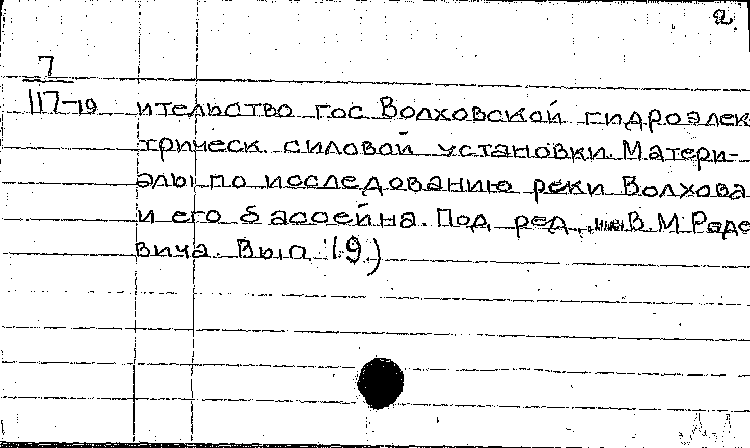 2.
7
117-19 ительство гос Волховской гидроэлек
трическ. силовой установки. Матери-
алы по исследованию реки Волхова
и его бассейна. Под ред. инж В. М. Роде
вича. Вып. 19.)